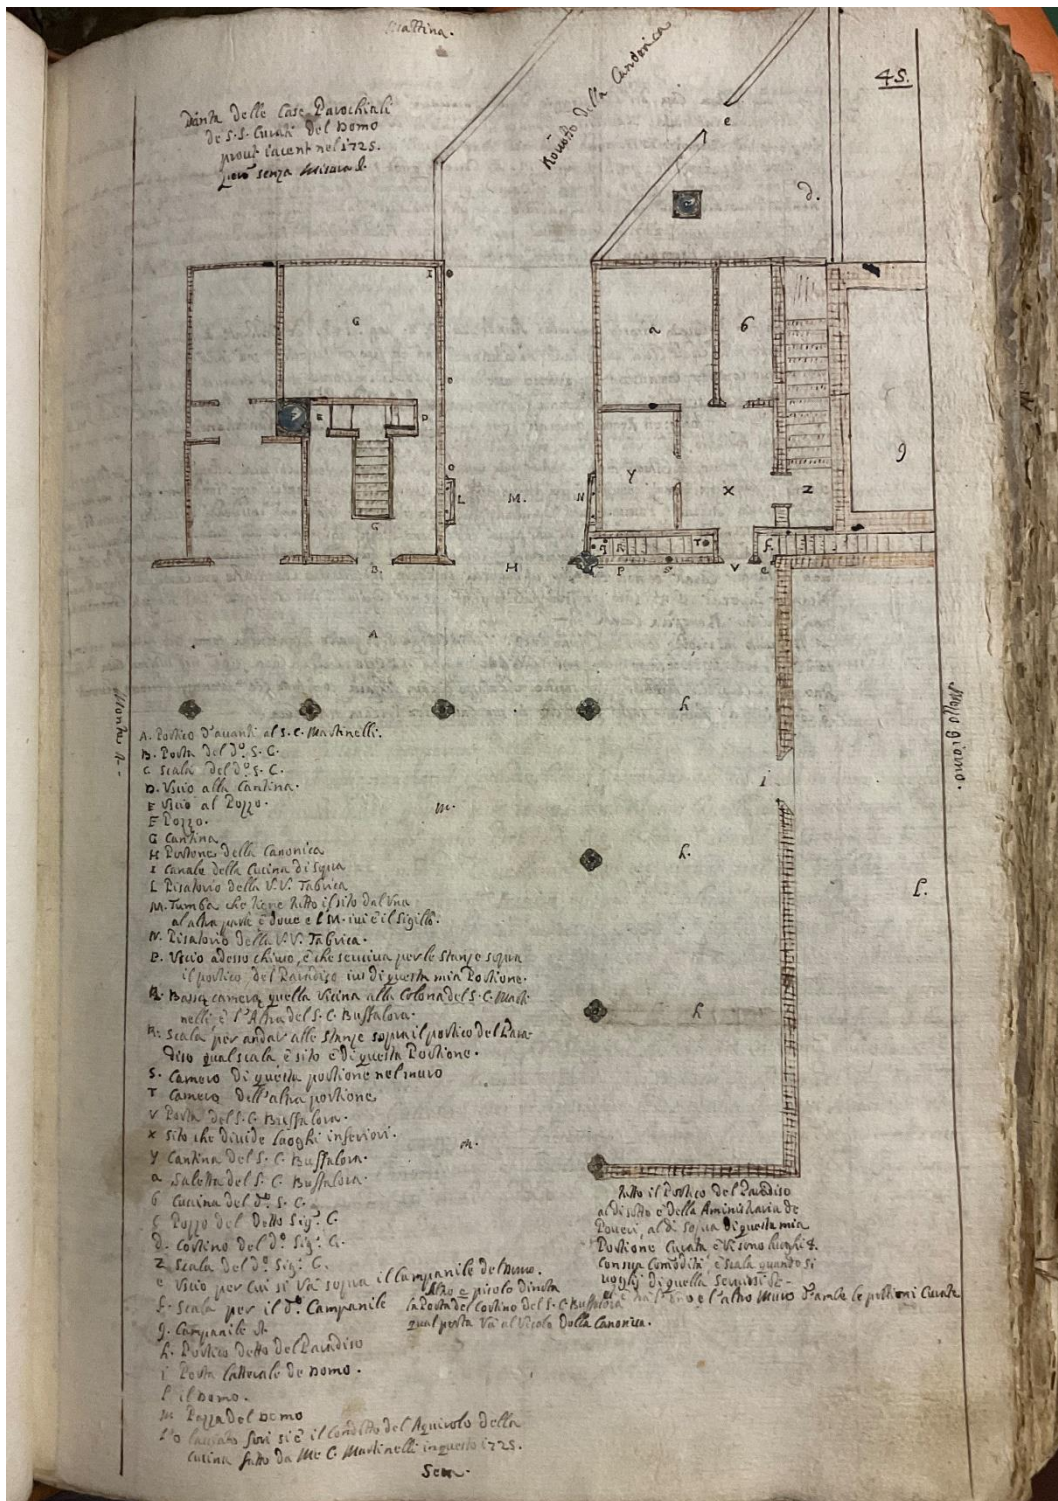 Mattina.
45.
delle Case Parochiali
de S.S. Curati del Domo
prout iacent nel 1725.
però senza Misura &.
della Canonica
e
d.
I
G
a
6
g
E
D
L
M.
N
Y
X
Z
G
B
H
P
S
V
e
T
f.
A
h
Mezzo giorno.
i
m.
h.
l.
h
m.
A. Portico d'auanti al S. C. Martinelli.
B. Porta del d.º S. C.
C Scala del d.º S. C.
D. Vscio alla Cantina.
E Vscio al Pozzo.
F Pozzo.
G Cantina
H Portone della Canonica
I Canale della Cucina di sopra
L Pisatorio della V.V. Fabrica
M. Tumba che tiene tutto il sito dal vna
al altra parte è doue e l'M. iui è il Sigillo.
N. Pisatorio della V.V. Fabrica.
P. Vscio adesso chiuso, è che seruiua per le stanze sopra
il portico del Paradiso iui di questa mia Portione.
Bassa camera quella vicina alla Colona del S. C. Marti
nelli è l'Altra del S. C. Buffalora.
R. Scala per andar alle stanze sopra il portico del Para
diso qual scala è sito è di questa Portione.
S. Camero di questa portione nel muro
T Camero dell'altra portione
V Porta del S. C. Buffalora.
X Sito che diuide luoghi inferiori.
Y Cantina del S. C. Buffalora.
a Saletta del S. C. Buffalora.
6 Cucina del d.º S. C.
c Pozzo del Detto Sig.r C.
d. Cortino del d.º Sig.r C.
Z Scala del d.º Sig.r C.
e Vscio per cui si và sopra il Campanile del Domo.
f. Scala per il d.º Campanile
g. Campanile &
h. Portico detto del Paradiso
i Porta latterale de Domo.
l il Domo.
m Pozza del Domo
fori si è il Condotto del Aquirolo della
cucina fatto da Me C. Martinelli in questo 1725.
Altro e picolo dinota
la Porta del Cortino del S. C. Buffalora
qual porta và al Vicolo della Canonica.
tutto il Portico del Paradiso
al di sotto è della de
Poueri, al di sopra di questa mia
Portione Curata, è vi sono luoghi &.
con sua Comodità, è scala quando si
di quella
e l'altro Muro d'ambe le portioni Curate
Sera.